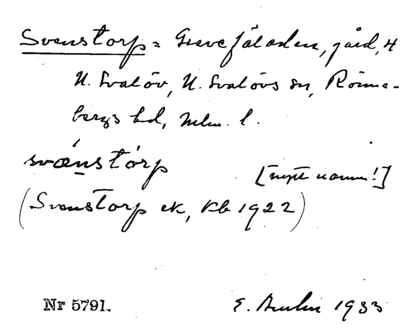 Svenstorp = Grevefäladen, gård, 4
N. Svalöv, N. Svalövs sn, Rönne-
bergs hd, Mlm. l.
svǽnstórp [nytt namn!]
(Svenstorp ek, Kb 1922)
Nr 5791. E. 1933